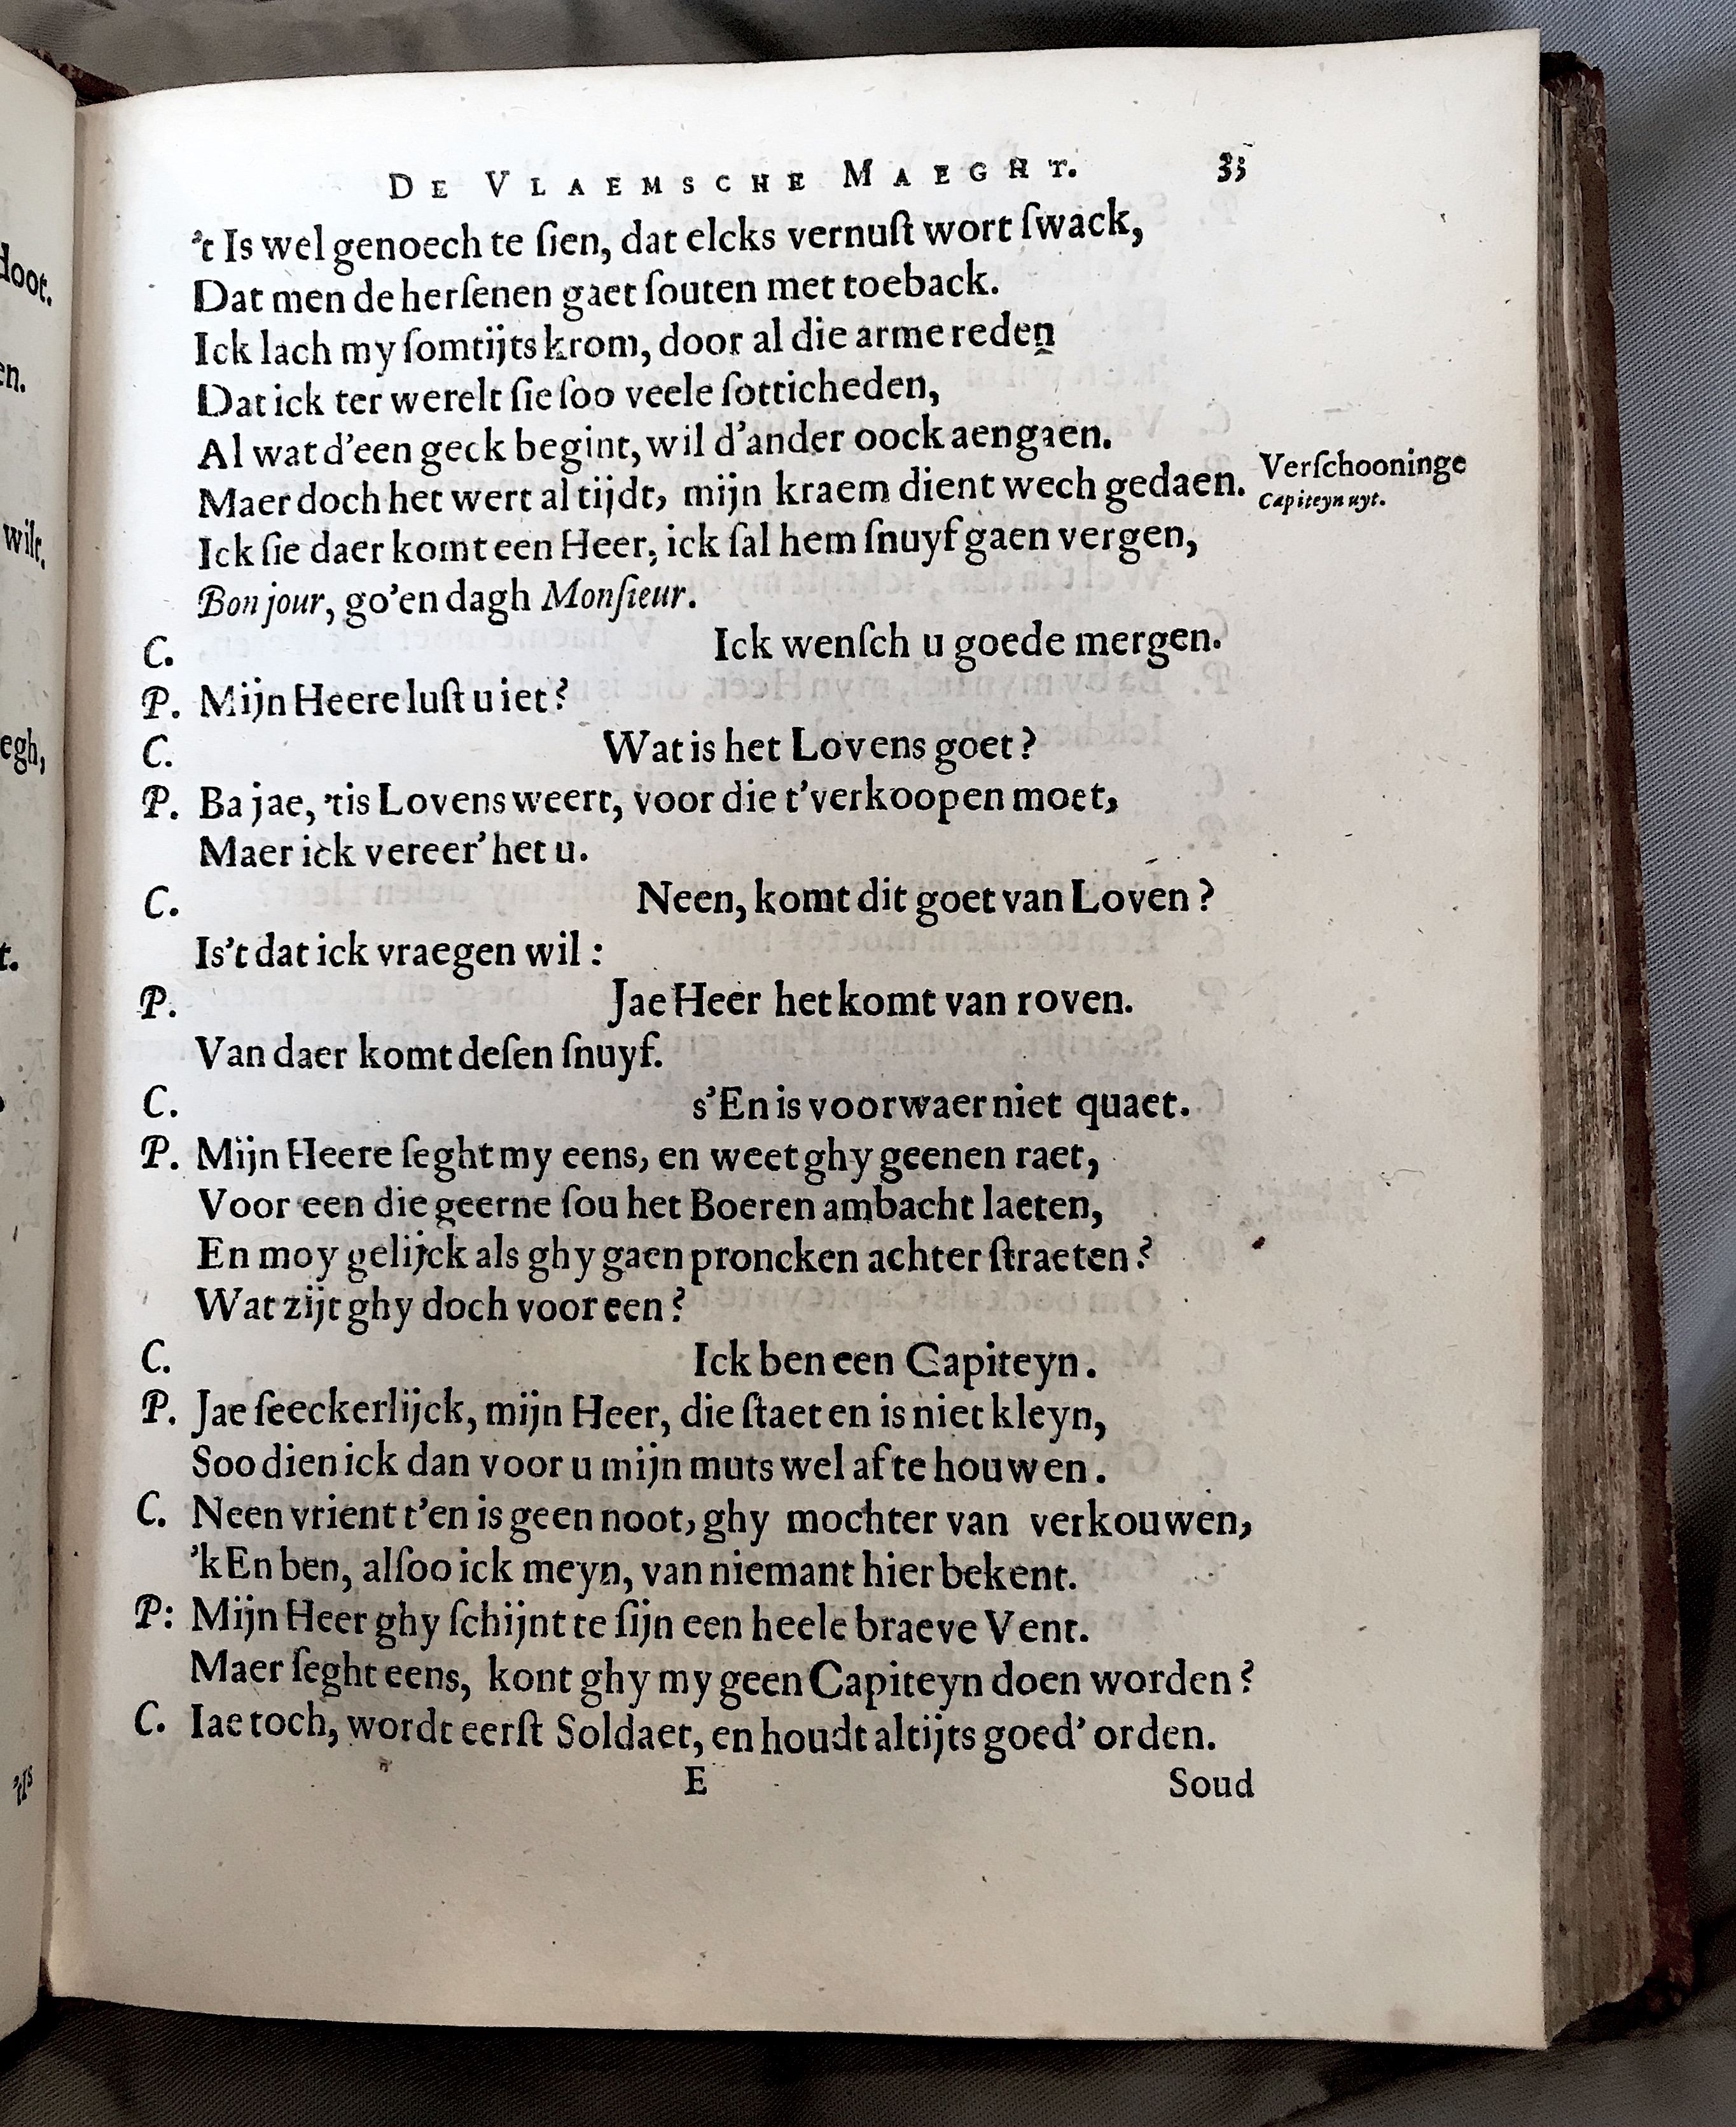 DE VLAEMSCHE MAEGHT. 33
't Is wel genoech te ſien, dat elcks vernuſt wort ſwack,
Dat men de herſenen gaet ſouten met toeback.
Ick lach my ſomtijts krom, door al die arme reden
Dat ick ter werelt ſie ſoo veele ſotticheden,
Al wat d'een geck begint, wil d'ander oock aengaen.
Maer doch het wert al tijdt, mijn kraem dient wech gedaen. Verſchooninge
Capiteyn uyt.
Ick ſie daer komt een Heer, ick ſal hem ſnuyf gaen vergen,
Bon jour, go'en dagh Monſieur.
C. Ick wenſch u goede mergen.
P. Mijn Heere luſt u iet?
C. Wat is het Lovens goet?
P. Ba jae, 'tis Lovens weert, voor die t'verkoopen moet,
Maer ick vereer' het u.
C. Neen, komt dit goet van Loven?
Is't dat ick vraegen wil:
P. Jae Heer het komt van roven.
Van daer komt deſen ſnuyf.
C. s'En is voorwaer niet quaet.
P. Mijn Heere ſeght my eens, en weet ghy geenen raet,
Voor een die geerne ſou het Boeren ambacht laeten,
En moy gelijck als ghy gaen proncken achter ſtraeten?
Wat zijt ghy doch voor een?
C. Ick ben een Capiteyn.
P. Jae ſeeckerlijck, mijn Heer, die ſtaet en is niet kleyn,
Soo dien ick dan voor u mijn muts wel af te houwen.
C. Neen vrient t'en is geen noot, ghy mochter van verkouwen,
'k En ben, alſoo ick meyn, van niemant hier bekent.
P: Mijn Heer ghy ſchijnt te ſijn een heele braeve Vent.
Maer ſeght eens, kont ghy my geen Capiteyn doen worden?
C. Iae toch, wordt eerſt Soldaet, en houdt altijts goed' orden.
E Soud